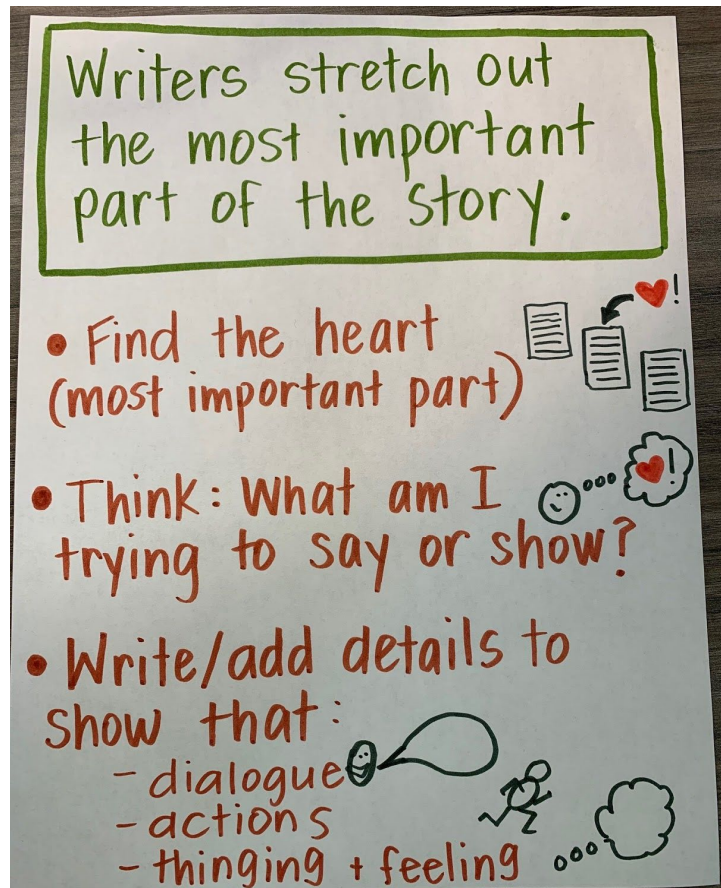 Writers stretch out
the most important
part of the story.
• Find the heart
(most important part)
!
• Think: What am I
!
trying to say or show?
• Write/add details to
show that:
- dialogue
- actions
- thinging + feeling